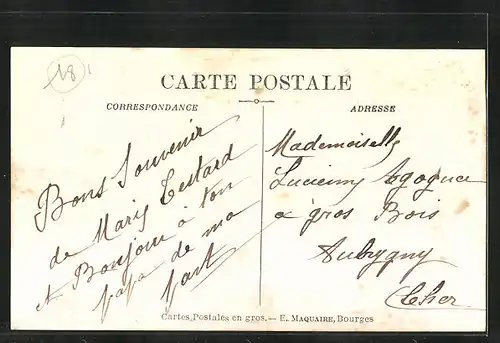 18
CARTE POSTALE
CORRESPONDANCE
ADRESSE
Bons Souvenir
de Marie Testard
et Bonjour à ton
papa de ma
part
Mademoiselle
Lucienne
a gros Bois
Aubygny
Cher
Cartes Postales en gros. — E. MAQUAIRE, Bourges